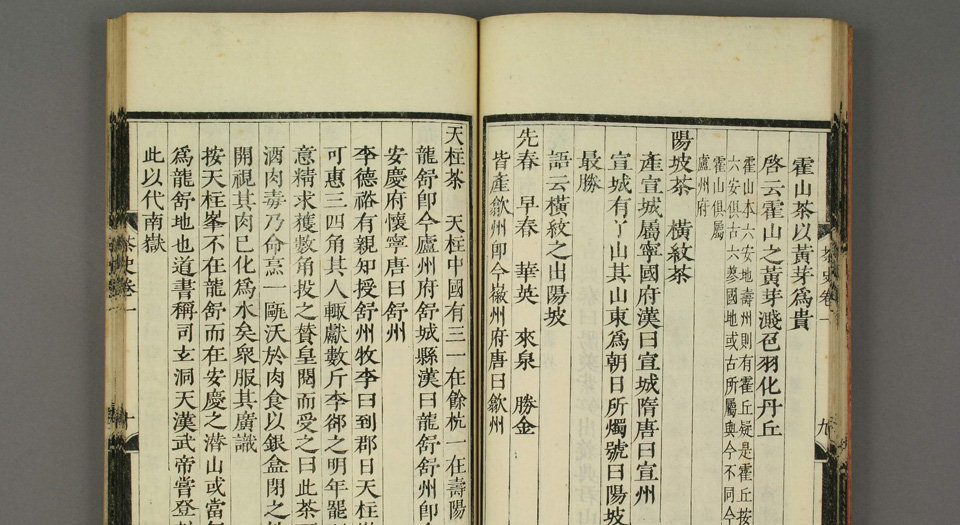 霍山茶以黃芽爲貴
啓云霍山之黃芽濺芭羽化丹丘
霍山本六安地壽州則有霍丘疑是霍丘按
六安俱古六蓼國地或古所屬與今不同今
霍山俱屬
廬州府
陽坡茶 橫紋茶
產宣城屬寧國府漢曰宣城隋唐曰宣州
宣城有丫山其山東爲朝日所燭號曰陽坡
最勝
語云橫紋之出陽坡
先春 早春 華英 來泉 勝金
皆產歙州卽今徽州府唐曰歙州
茶史卷一
九
天柱茶 天柱中國有三一在餘杭一在壽陽
龍舒卽今廬州府舒城縣漢曰龍舒舒州卽今
安慶府懷寧唐曰舒州
李德裕有親知授舒州牧李曰到郡日天柱
可惠三四角其人輙獻數斤李郤之明年罷
意精求獲數角投之贊皇閱而受之曰此茶
酒肉毒乃命烹一甌沃於肉食以銀盒閉之
開視其肉已化爲水矣衆服其廣識
按天柱峯不在龍舒而在安慶之潜山或當
爲龍舒地也道書稱司玄洞天漢武帝嘗登
此以代南嶽
茶史卷一
十